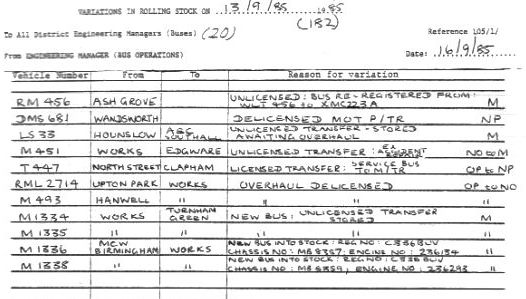 VARIATIONS IN ROLLING STOCK ON 13/9/85 1985
(182)
To All District Engineering Managers (Buses) (20) Reference 105/1/
From ENGINEERING MANAGER (BUS OPERATIONS) Date: 16/9/85
Vehicle Number From To Reason for variation
RM 456 ASH GROVE UNLICENSED: BUS RE-REGISTERED FROM:
WLT 456 to XMC223A M
DMS 681 WANDSWORTH DELICENSED MOT P/TR NP
LS 33 HOUNSLOW AEC SOUTHALL UNLICENSED TRANSFER - STORED
AWAITING OVERHAUL M
M 451 WORKS EDGWARE UNLICENSED TRANSFER: EX ACCIDENT REPAIR NO to M
T 447 NORTH STREET CLAPHAM LICENSED TRANSFER: SERVICE BUS
TO M/TR OP to NP
RML 2714 UPTON PARK WORKS OVERHAUL DELICENSED OP to NO
M 493 HANWELL " " " " "
M 1334 WORKS TURNHAM GREEN NEW BUS: UNLICENSED TRANSFER
STORED M
M 1335 " " " " " "
M 1336 MCW BIRMINGHAM WORKS NEW BUS INTO STOCK: REG NO: C336BUV
CHASSIS NO: MB8357: ENGINE NO: 236134 "
M 1338 " " NEW BUS INTO STOCK: REG NO: C338BUV
CHASSIS NO: MB8359; ENGINE NO: 236293 "